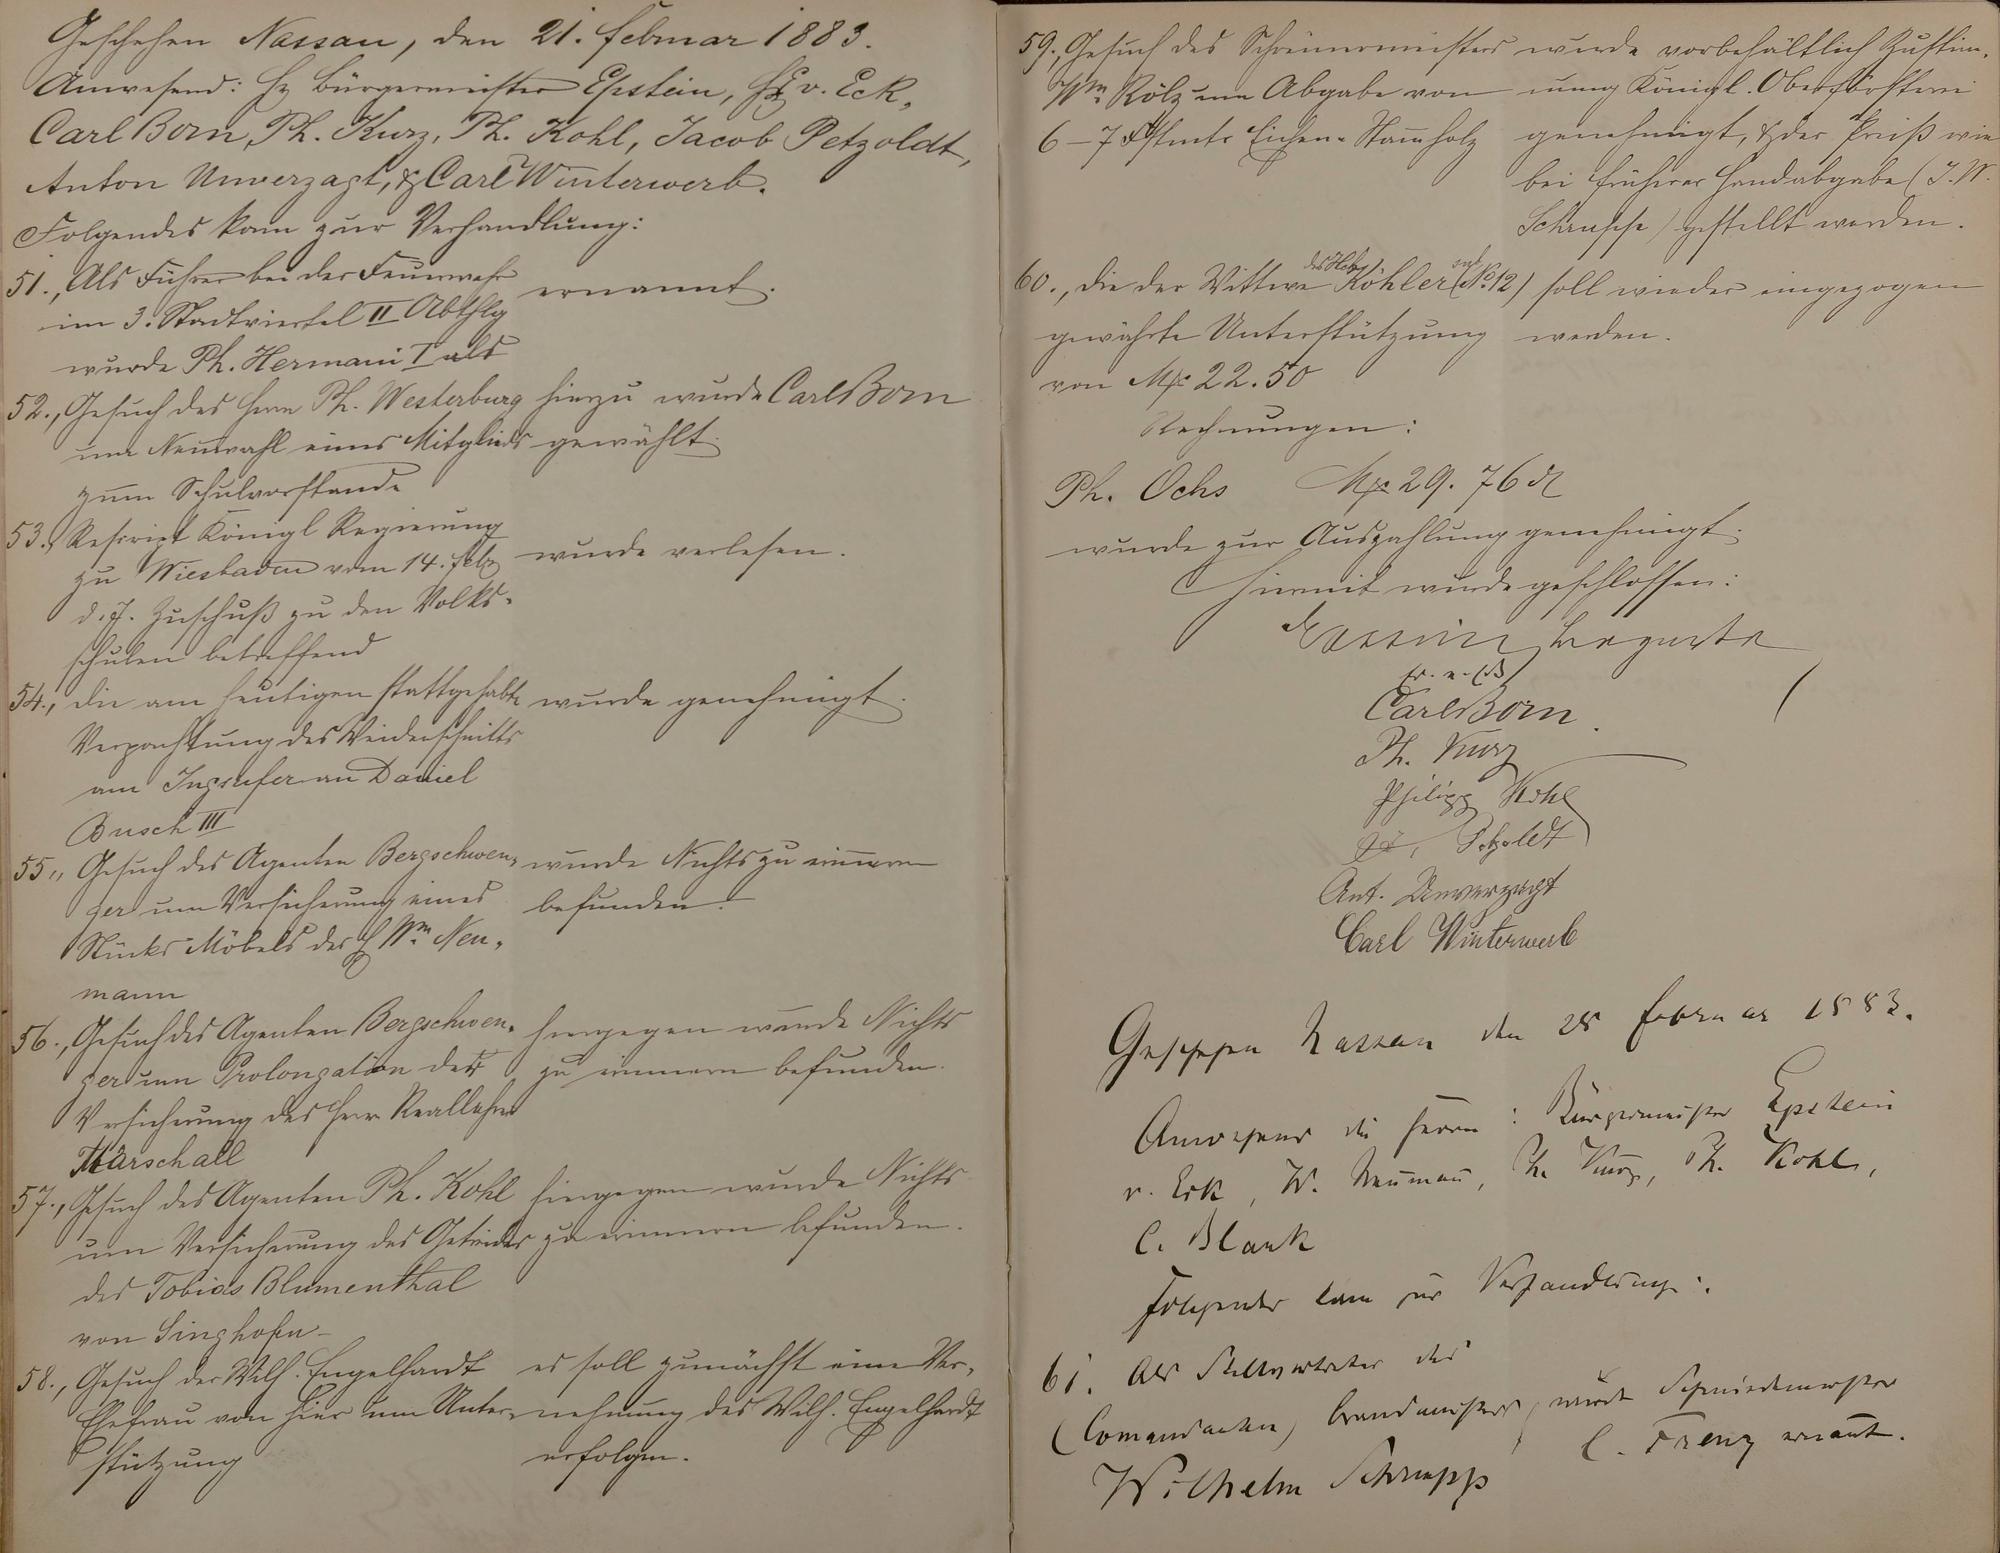 Geschehen Nassau, den 21. Februar 1883.
Anwesend: H Bürgermeister Epstein, H v. Eck,
Carl Born, Ph. Kurz, Ph. Kohl, Jacob Petzoldt,
Anton Unverzagt, & Carl Winterwerb.
Folgendes kam zur Verhandlung:
51., Als Führer bei der Feuerwehr
im 3. Stadtviertel II Abthlg
wurde Ph. Hermani I als
ernannt.
52., Gesuch des Herrn Ph. Westerburg
um Neuwahl eines Mitglieds
zum Schulvorstande
hierzu wurde Carl Born
gewählt.
53., Rescript Königl Regierung
zu Wiesbaden vom 14. Feb
d. J. Zuschuß zu den Volks-
schulen betreffend
wurde verlesen.
54., die am heutigen stattgehabte
Verpachtung des Weidenschnitts
am Daniel
Busch III
wurde genehmigt.
55., Gesuch des Agenten Bergschwen-
ger um Versicherung eines
Stücks Möbels des H Wm Neu-
mann
wurde Nichts zu erinnern
befunden.
56., Gesuch des Agenten Bergschwen-
ger um Prolongation der
Versicherung des Herrn Reallehrer
Marschall
hiergegen wurde Nichts
zu erinnern befunden.
57., Gesuch des Agenten Ph. Kohl
um Versicherung des Getreides
des Tobias Blumenthal
von Singhofen
hiergegen wurde Nichts
zu erinnern befunden.
58., Gesuch der Wilh. Engelhardt
Ehefrau von hier um Unter-
stützung
es soll zunächst eine Ver-
nehmung des Wilh. Engelhardt
erfolgen.
59., Gesuch des Schreinermeisters
Wm Rölz um Abgabe von
6-7 Fstmtr Eichen-Stammholz
wurde vorbehältlich Zustim-
mung Königl. Oberförsterei
genehmigt, & der Preiß wie
bei früherer Handabgabe (J. W.
Schrupp) gestellt werden.
60., die der Wittwe des Köhler (No 12)
gewährte Unterstützung
von Mk 22.50
soll wieder eingezogen
werden.
Rechnungen:
Ph. Ochs Mk 29. 76 d
wurde zur Auszahlung genehmigt.
Hiermit wurde geschlossen:
Carl Born
Ph. Kurz
Philipp Kohl
Petzoldt
Ant. Unverzagt
Carl Winterwerb
Geschehen Nassau den 28 Februar 1883.
Anwesend die Herrn: Bürgermeister Epstein
v. Eck, W. Neumañ, Ph. Kurz, Ph. Kohl,
C. Blank
Folgendes kam zur Verhandlung:
61. Als Stellvertreter des
(Comandanten) Brandmeisters
Wilhelm Schrupp
wurde Schmiedemeister
C. Frenz ernañt.